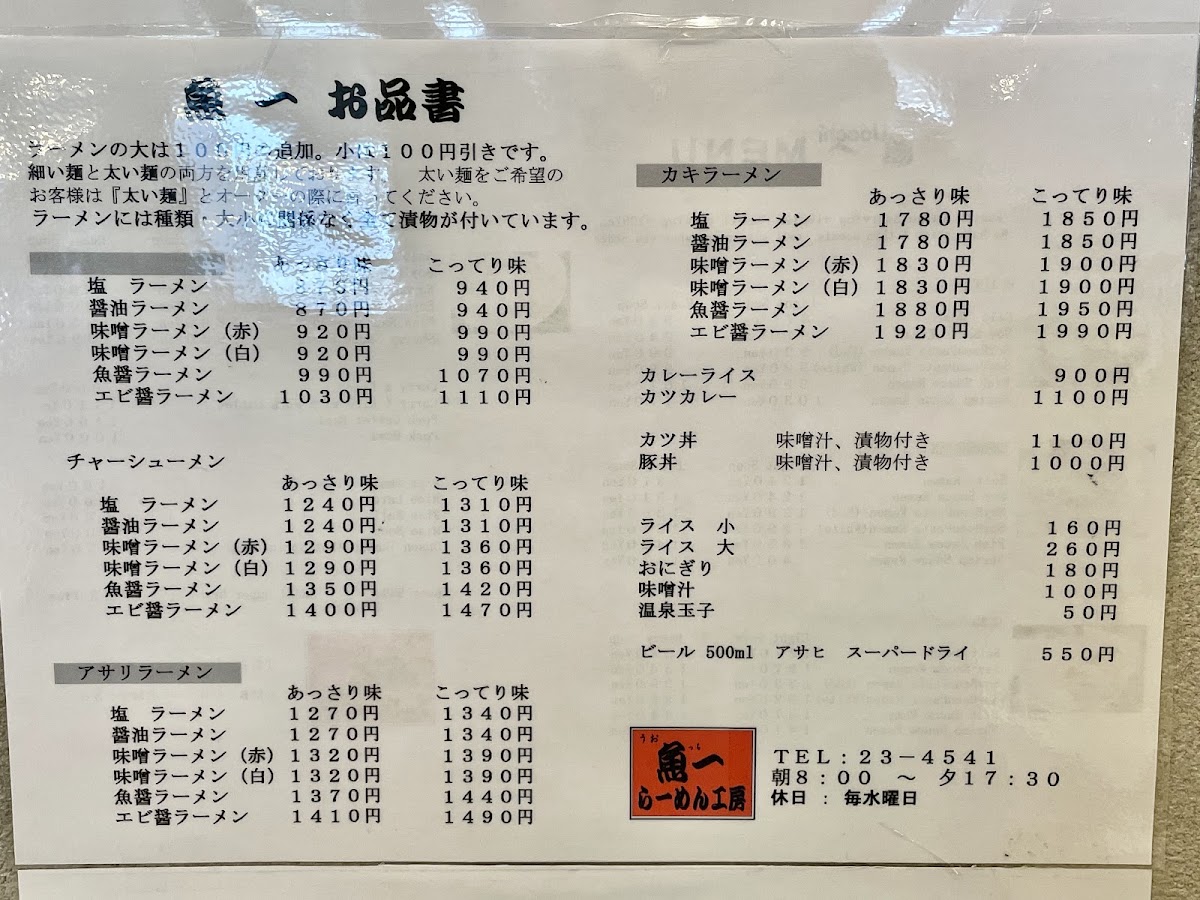 魚一 お品書
ラーメンの大は１００円の追加。小は１００円引きです。
細い麺と太い麺の両方を しております。 太い麺をご希望の
お客様は『太い麺』とオーダーの際に言ってください。
ラーメンには種類・大小に関係なく全て漬物が付いています。
あっさり味 こってり味
塩 ラーメン ８７０円 ９４０円
醤油ラーメン ８７０円 ９４０円
味噌ラーメン（赤） ９２０円 ９９０円
味噌ラーメン（白） ９２０円 ９９０円
魚醤ラーメン ９９０円 １０７０円
エビ醤ラーメン １０３０円 １１１０円
チャーシューメン
あっさり味 こってり味
塩 ラーメン １２４０円 １３１０円
醤油ラーメン １２４０円 １３１０円
味噌ラーメン（赤） １２９０円 １３６０円
味噌ラーメン（白） １２９０円 １３６０円
魚醤ラーメン １３５０円 １４２０円
エビ醤ラーメン １４００円 １４７０円
アサリラーメン
あっさり味 こってり味
塩 ラーメン １２７０円 １３４０円
醤油ラーメン １２７０円 １３４０円
味噌ラーメン（赤） １３２０円 １３９０円
味噌ラーメン（白） １３２０円 １３９０円
魚醤ラーメン １３７０円 １４４０円
エビ醤ラーメン １４１０円 １４９０円
カキラーメン
あっさり味 こってり味
塩 ラーメン １７８０円 １８５０円
醤油ラーメン １７８０円 １８５０円
味噌ラーメン（赤） １８３０円 １９００円
味噌ラーメン（白） １８３０円 １９００円
魚醤ラーメン １８８０円 １９５０円
エビ醤ラーメン １９２０円 １９９０円
カレーライス ９００円
カツカレー １１００円
カツ丼 味噌汁、漬物付き １１００円
豚丼 味噌汁、漬物付き １０００円
ライス 小 １６０円
ライス 大 ２６０円
おにぎり １８０円
味噌汁 １００円
温泉玉子 ５０円
ビール 500ml アサヒ スーパードライ ５５０円
うお っち
魚一
らーめん工房
ＴＥＬ：２３－４５４１
朝８：００ ～ 夕１７：３０
休日 ： 毎水曜日